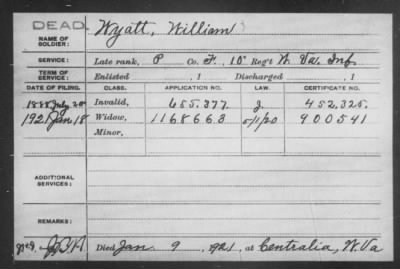 DEAD.
NAME OF SOLDIER: Wyatt, William
SERVICE: Late rank, P Co. F, 10" Reg't W. Va. Inf.
TERM OF SERVICE: Enlisted , 1 Discharged , 1
DATE OF FILING. CLASS. APPLICATION NO. LAW. CERTIFICATE NO.
1888 July 20 Invalid, 655.377 J. 452,325.
1921 Jan. 18 Widow, 1168663 5/1/20 900541
Minor,
ADDITIONAL SERVICES:
REMARKS:
Died Jan. 9, 1921, at Centralia, W. Va